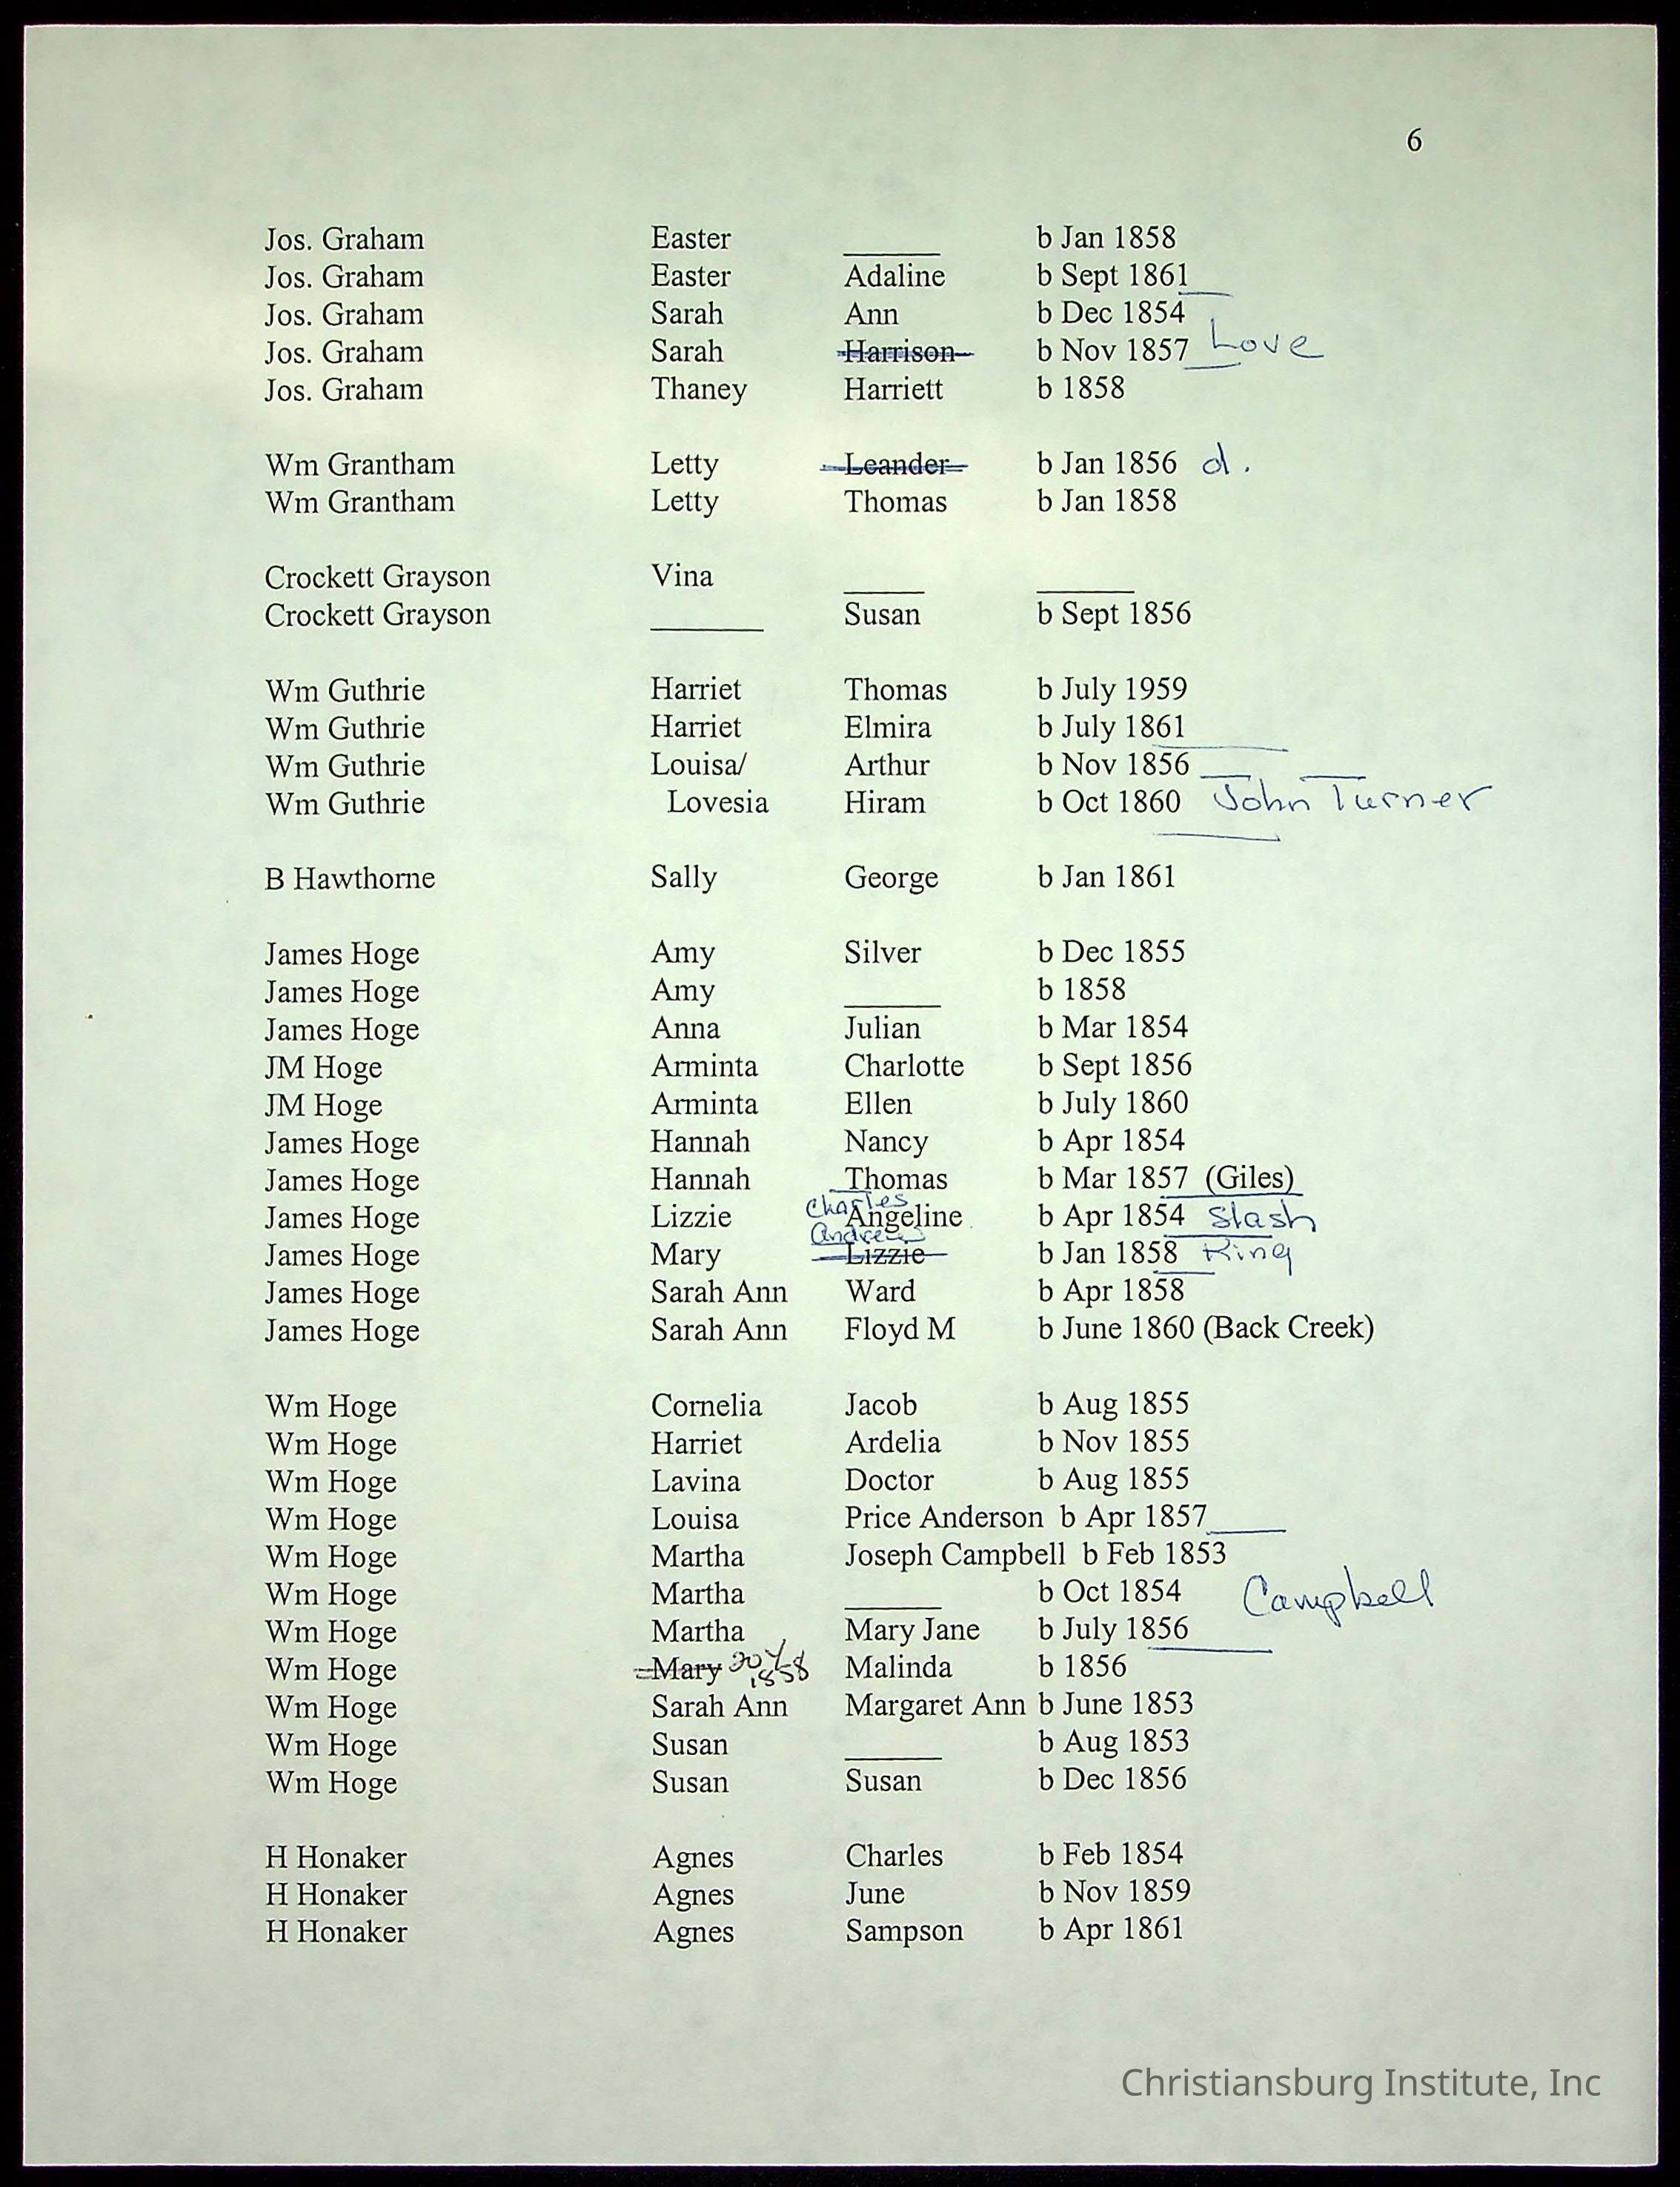 6
Jos. Graham Easter ______ b Jan 1858
Jos. Graham Easter Adaline b Sept 1861
Jos. Graham Sarah Ann b Dec 1854
Jos. Graham Sarah Harrison b Nov 1857 Love
Jos. Graham Thaney Harriett b 1858
Wm Grantham Letty Leander b Jan 1856 d.
Wm Grantham Letty Thomas b Jan 1858
Crockett Grayson Vina _____ ______
Crockett Grayson _______ Susan b Sept 1856
Wm Guthrie Harriet Thomas b July 1959
Wm Guthrie Harriet Elmira b July 1861
Wm Guthrie Louisa/ Arthur b Nov 1856
Wm Guthrie Lovesia Hiram b Oct 1860 John Turner
B Hawthorne Sally George b Jan 1861
James Hoge Amy Silver b Dec 1855
James Hoge Amy ______ b 1858
James Hoge Anna Julian b Mar 1854
JM Hoge Arminta Charlotte b Sept 1856
JM Hoge Arminta Ellen b July 1860
James Hoge Hannah Nancy b Apr 1854
James Hoge Hannah Thomas b Mar 1857 (Giles)
Charles
James Hoge Lizzie Angeline b Apr 1854 Slash
Andrew
James Hoge Mary Lizzie b Jan 1858 King
James Hoge Sarah Ann Ward b Apr 1858
James Hoge Sarah Ann Floyd M b June 1860 (Back Creek)
Wm Hoge Cornelia Jacob b Aug 1855
Wm Hoge Harriet Ardelia b Nov 1855
Wm Hoge Lavina Doctor b Aug 1855
Wm Hoge Louisa Price Anderson b Apr 1857
Wm Hoge Martha Joseph Campbell b Feb 1853
Wm Hoge Martha ______ b Oct 1854 Campbell
Wm Hoge Martha Mary Jane b July 1856
Wm Hoge Mary 1858 Malinda b 1856
Wm Hoge Sarah Ann Margaret Ann b June 1853
Wm Hoge Susan ______ b Aug 1853
Wm Hoge Susan Susan b Dec 1856
H Honaker Agnes Charles b Feb 1854
H Honaker Agnes June b Nov 1859
H Honaker Agnes Sampson b Apr 1861
Christiansburg Institute, Inc